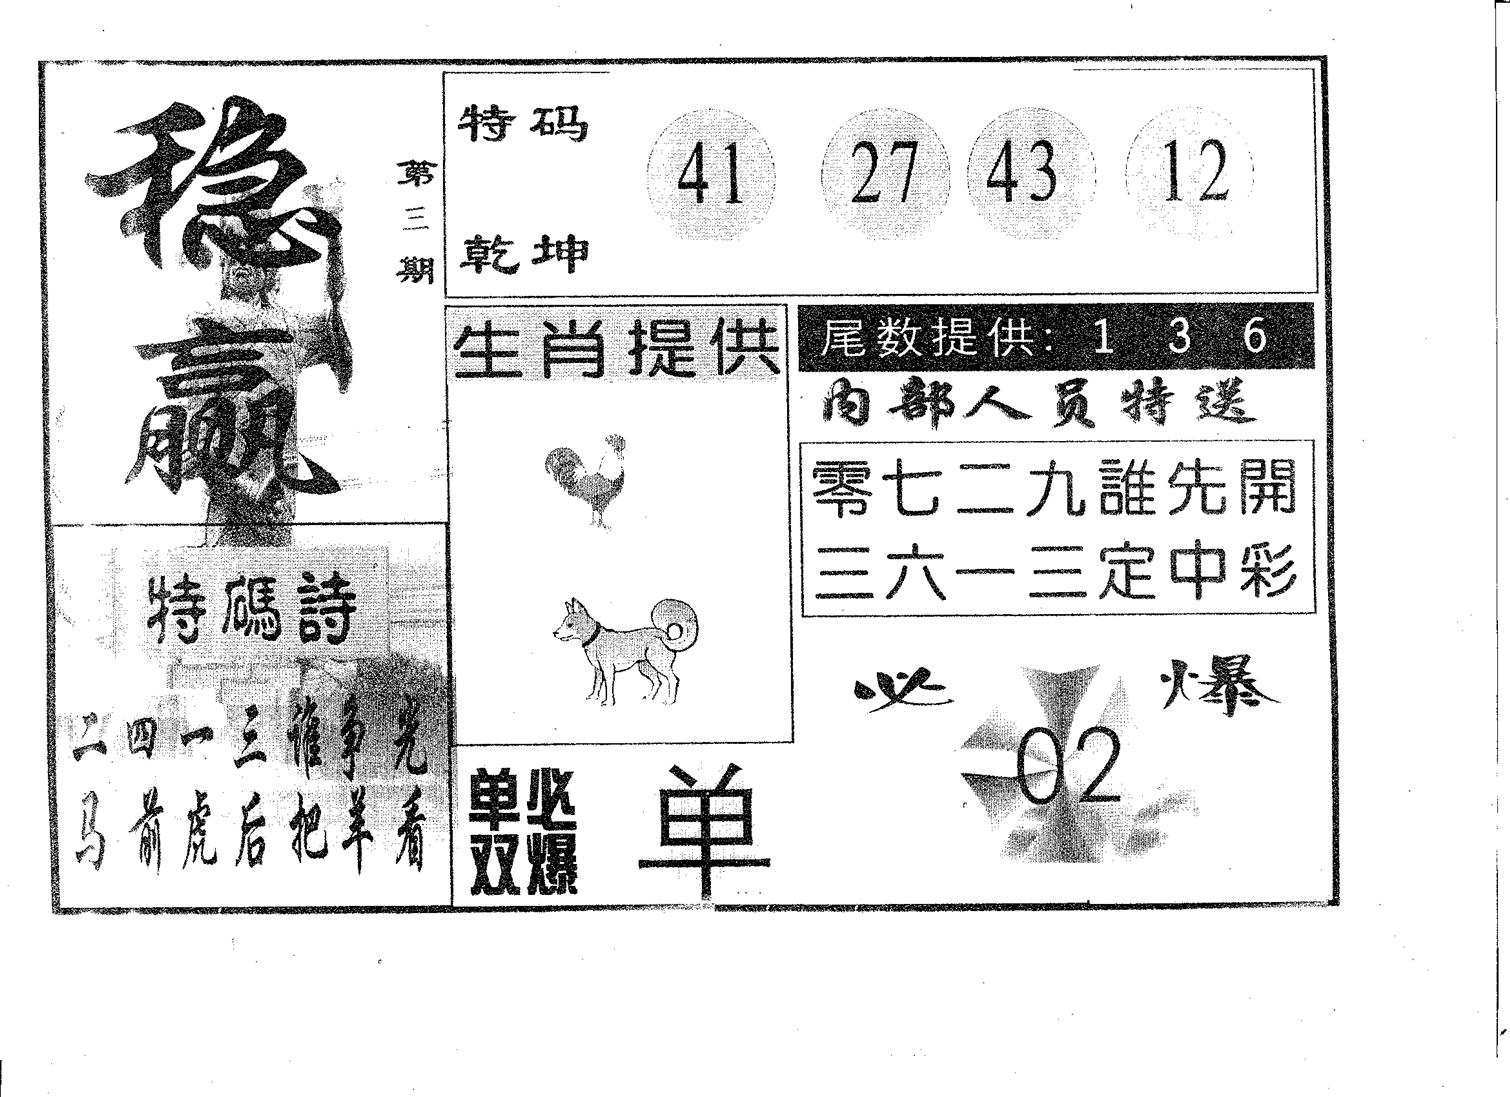 稳赢
第三期
特码
乾坤
41 27 43 12
生肖提供
尾数提供: 1 3 6
内部人员特送
零七二九誰先開
三六一三定中彩
特碼詩
二四一三谁争先
马前虎后把羊看
必爆
02
单双
必爆
单